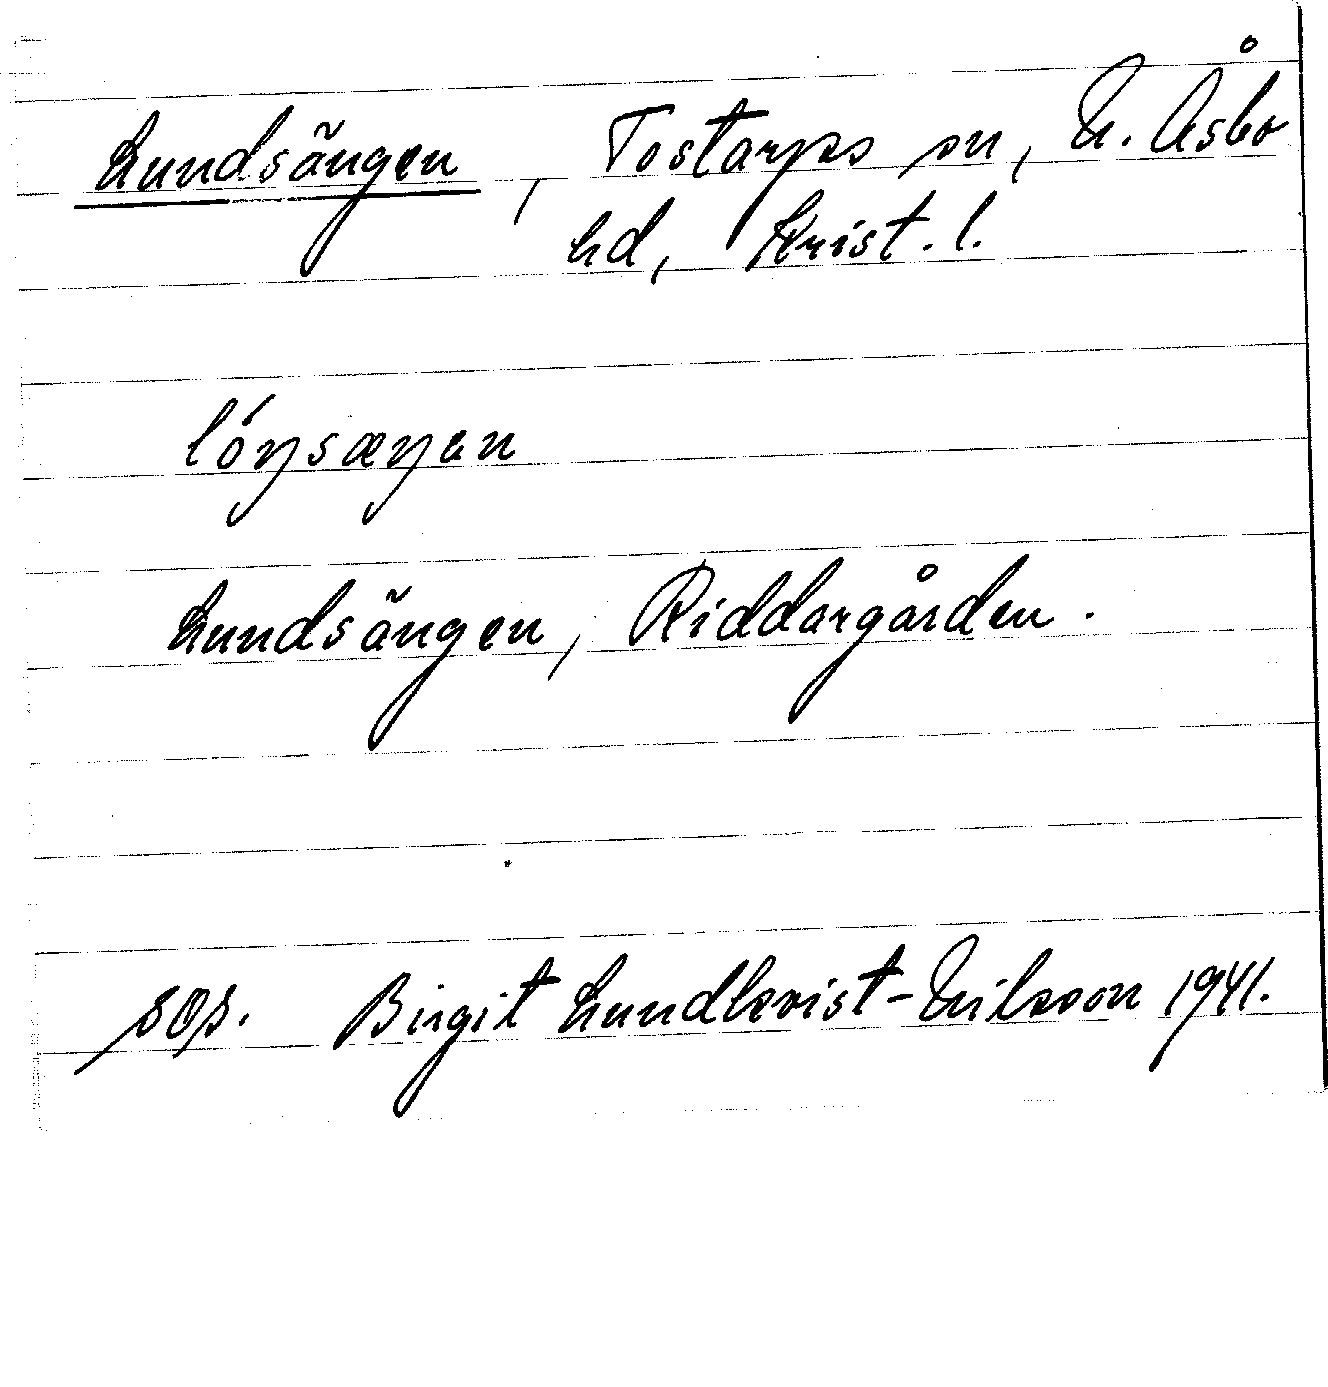 Lundsängen, Tostarps sn, N. Åsbo
hd, Krist. l.
lóŋsæŋen
Lundsängen, Riddargården.
sop. Birgit Lundkvist-Nilsson 1941.